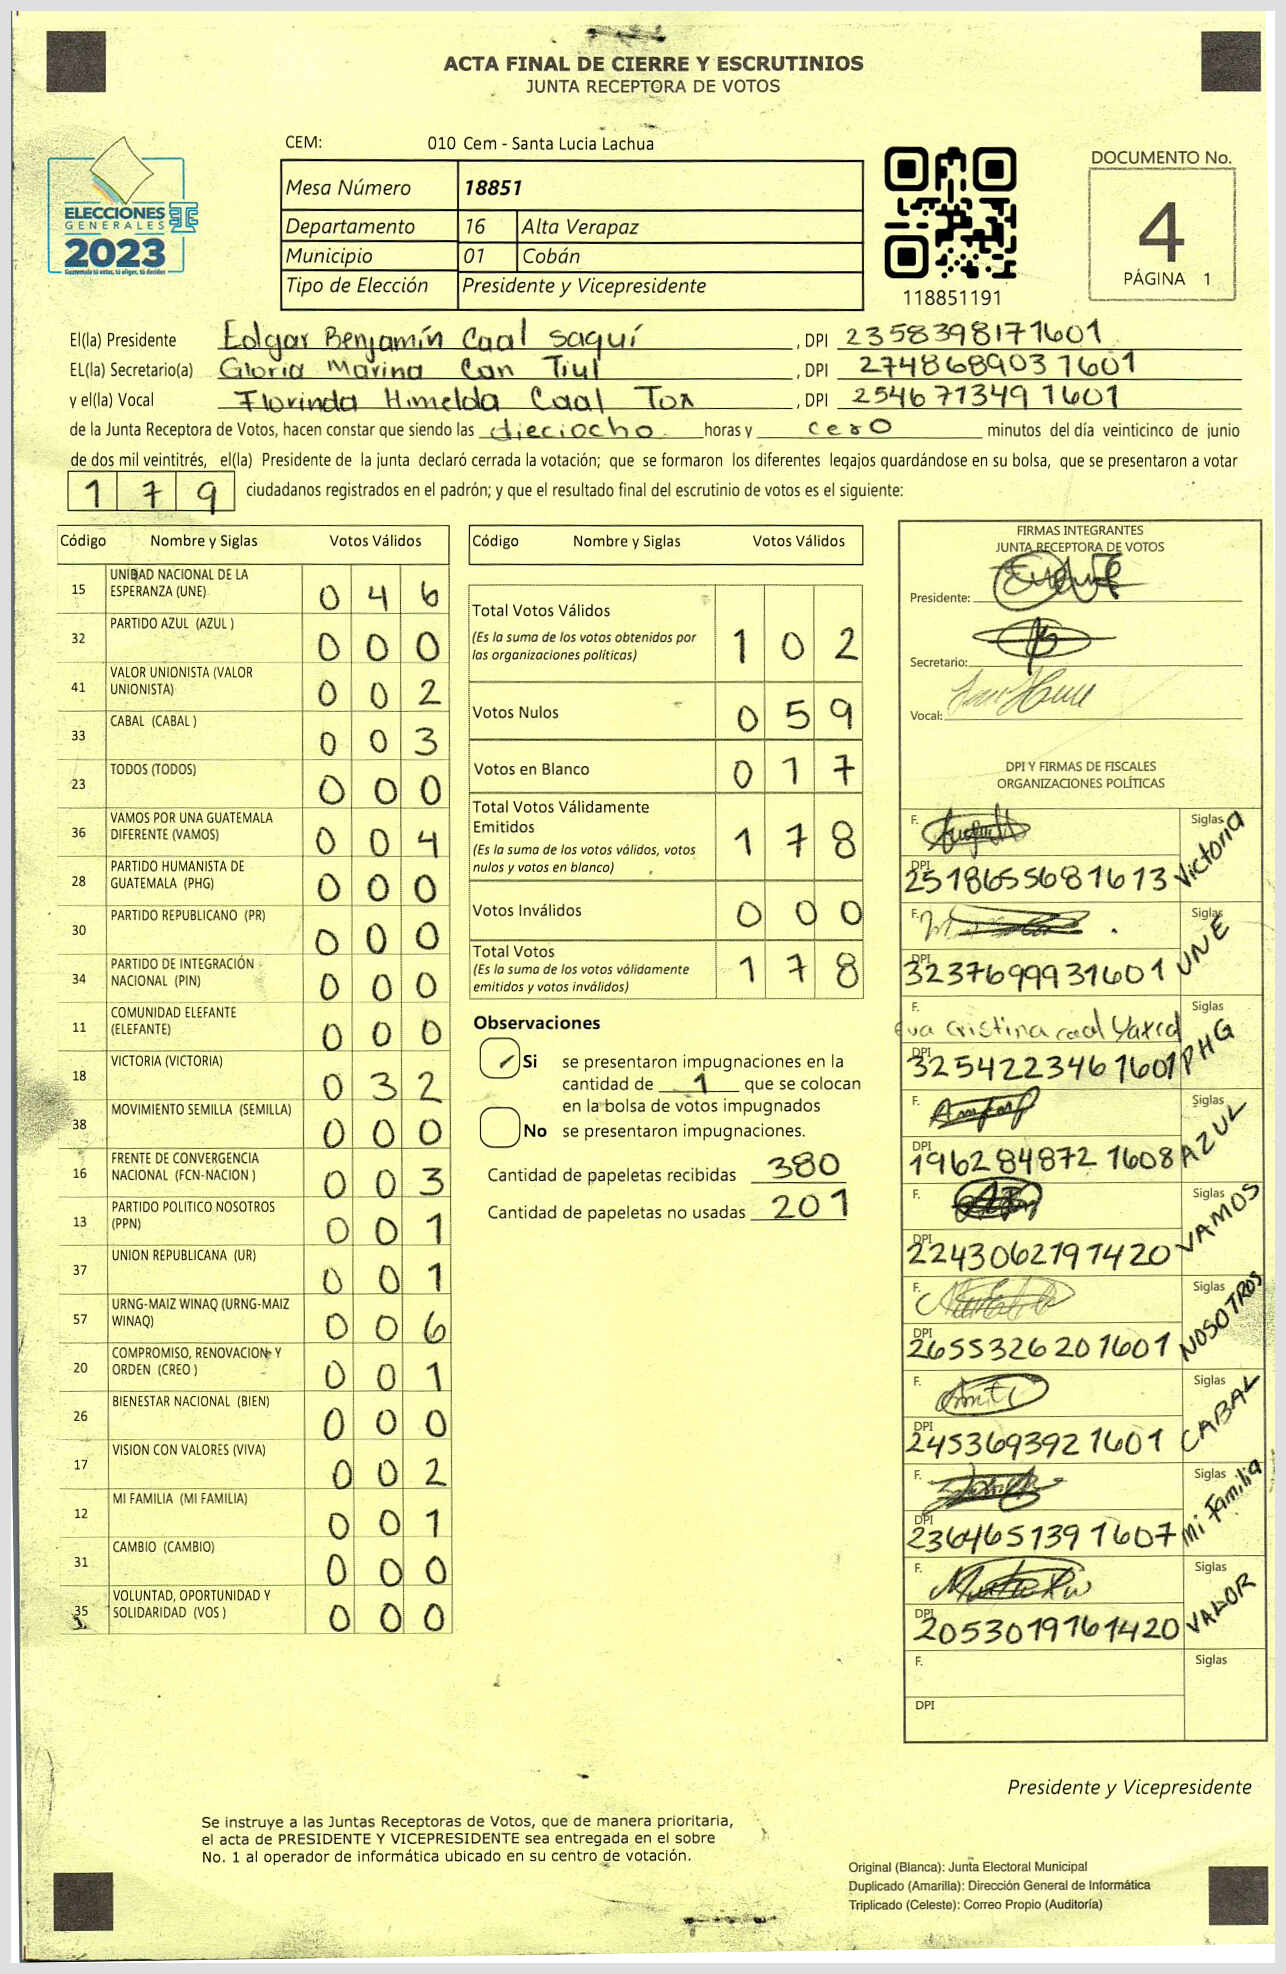 ACTA FINAL DE CIERRE Y ESCRUTINIOS
JUNTA RECEPTORA DE VOTOS
ELECCIONES
GENERALES
2023
Guatemala tú votas, tú eliges, tú decides
CEM: 010 Cem - Santa Lucia Lachua
Mesa Número 18851
Departamento 16 Alta Verapaz
Municipio 01 Cobán
Tipo de Elección Presidente y Vicepresidente
118851191
DOCUMENTO No.
4
PÁGINA 1
El(la) Presidente Edgar Benjamín Caal Saquí, DPI 2358398171601
EL(la) Secretario(a) Gloria Marina Can Tiul, DPI 2748689031601
y el(la) Vocal Florinda Himelda Caal Tox, DPI 2546713491601
de la Junta Receptora de Votos, hacen constar que siendo las dieciocho horas y cero minutos del día veinticinco de junio
de dos mil veintitrés, el(la) Presidente de la junta declaró cerrada la votación; que se formaron los diferentes legajos guardándose en su bolsa, que se presentaron a votar
179 ciudadanos registrados en el padrón; y que el resultado final del escrutinio de votos es el siguiente:
Código Nombre y Siglas Votos Válidos
15 UNIDAD NACIONAL DE LA ESPERANZA (UNE) 046
32 PARTIDO AZUL (AZUL ) 000
41 VALOR UNIONISTA (VALOR UNIONISTA) 002
33 CABAL (CABAL ) 003
23 TODOS (TODOS) 000
36 VAMOS POR UNA GUATEMALA DIFERENTE (VAMOS) 004
28 PARTIDO HUMANISTA DE GUATEMALA (PHG) 000
30 PARTIDO REPUBLICANO (PR) 000
34 PARTIDO DE INTEGRACIÓN NACIONAL (PIN) 000
11 COMUNIDAD ELEFANTE (ELEFANTE) 000
18 VICTORIA (VICTORIA) 032
38 MOVIMIENTO SEMILLA (SEMILLA) 000
16 FRENTE DE CONVERGENCIA NACIONAL (FCN-NACION ) 003
13 PARTIDO POLITICO NOSOTROS (PPN) 001
37 UNION REPUBLICANA (UR) 001
57 URNG-MAIZ WINAQ (URNG-MAIZ WINAQ) 006
20 COMPROMISO, RENOVACION Y ORDEN (CREO ) 001
26 BIENESTAR NACIONAL (BIEN) 000
17 VISION CON VALORES (VIVA) 002
12 MI FAMILIA (MI FAMILIA) 001
31 CAMBIO (CAMBIO) 000
35 VOLUNTAD, OPORTUNIDAD Y SOLIDARIDAD (VOS ) 000
Código Nombre y Siglas Votos Válidos
Total Votos Válidos 102
(Es la suma de los votos obtenidos por
las organizaciones políticas)
Votos Nulos 059
Votos en Blanco 017
Total Votos Válidamente
Emitidos 178
(Es la suma de los votos válidos, votos
nulos y votos en blanco)
Votos Inválidos 000
Total Votos 178
(Es la suma de los votos válidamente
emitidos y votos inválidos)
Observaciones
Si se presentaron impugnaciones en la
cantidad de 1 que se colocan
en la bolsa de votos impugnados
No se presentaron impugnaciones.
Cantidad de papeletas recibidas 380
Cantidad de papeletas no usadas 201
FIRMAS INTEGRANTES
JUNTA RECEPTORA DE VOTOS
Presidente:
Secretario:
Vocal:
DPI Y FIRMAS DE FISCALES
ORGANIZACIONES POLÍTICAS
F. Siglas Victoria
DPI 2518655681613
F. Siglas UNE
DPI 3237699931601
F. Eva Cristina caal Yaxcal Siglas PHG
DPI 3254223461601
F. Siglas AZUL
DPI 1962848721608
F. Siglas VAMOS
DPI 2243062191420
F. Siglas NOSOTROS
DPI 2655326201601
F. Siglas CABAL
DPI 2453693921601
F. Siglas Mi Familia
DPI 2364651391607
F. Siglas VALOR
DPI 2053019161420
F. Siglas
DPI
Presidente y Vicepresidente
Se instruye a las Juntas Receptoras de Votos, que de manera prioritaria,
el acta de PRESIDENTE Y VICEPRESIDENTE sea entregada en el sobre
No. 1 al operador de informática ubicado en su centro de votación.
Original (Blanca): Junta Electoral Municipal
Duplicado (Amarilla): Dirección General de Informática
Triplicado (Celeste): Correo Propio (Auditoría)